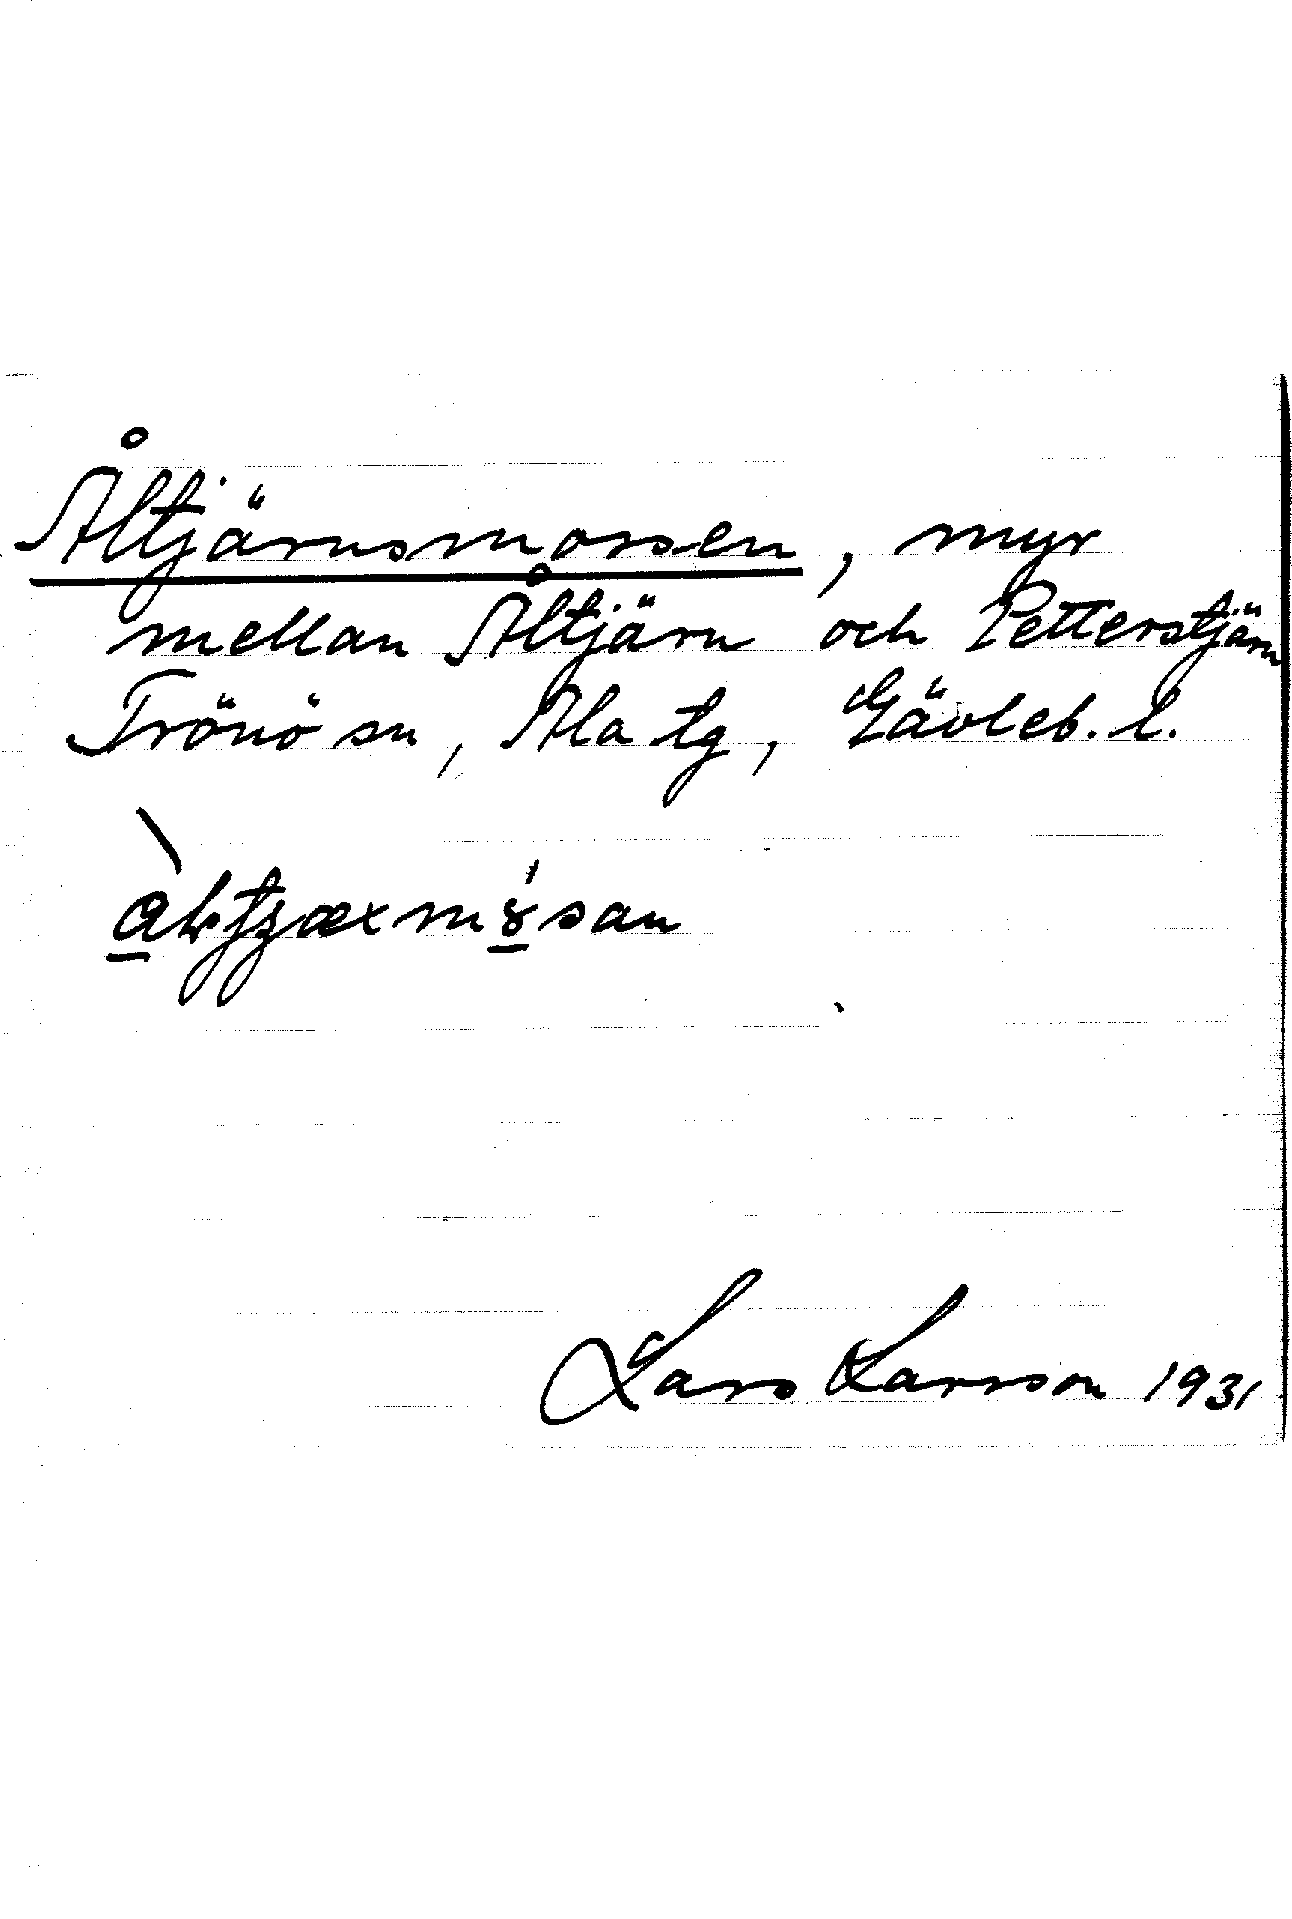 Åltjärnsmossen, myr
mellan Åltjärn och Petterstjärn
Trönö sn, Ala tg, Gävleb. l.
Lars Larsson 1931